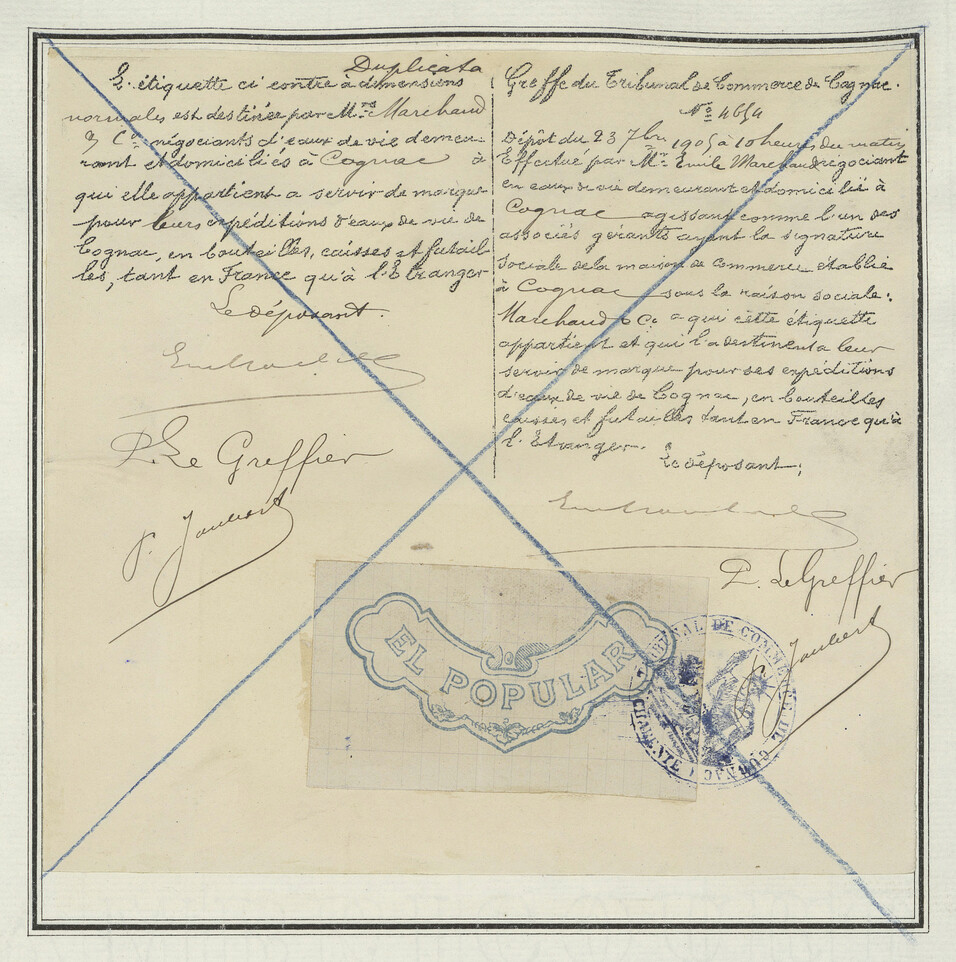 Duplicata
L'étiquette ci contre à dimensions
normales est destinée par Mrs Marchand
& Co négociants d'eaux de vie demeu-
rant et domiciliés à Cognac à
qui elle appartient a servir de marque
pour leurs expéditions d'eaux de vie de
Cognac, en bouteilles, caisses et futail
les, tant en France qu'à l'Etranger
Le déposant.
P. Le Greffier
P. Joubert
Greffe du Tribunal de Commerce de Cognac.
No 4654
Dépôt du 23 7bre 1905 à 10 heures du matin
Effectué par Mr Emile Marchand négociant
en eaux de vie demeurant et domicilié à
Cognac agissant comme l'un des
associés gérants ayant la signature
sociale de la maison de commerce établie
à Cognac sous la raison sociale:
Marchand & Co a qui cette étiquette
appartient et qui l'a destinent a leur
servir de marque pour ses expéditions
d'eaux de vie de Cognac, en bouteilles
caisses et futailles tant en France qu'à
l'Etranger.
Le déposant;
P. Le Greffier
P. Joubert
EL POPULAR
TRIBUNAL DE COMMERCE DE COGNAC
CHARENTE